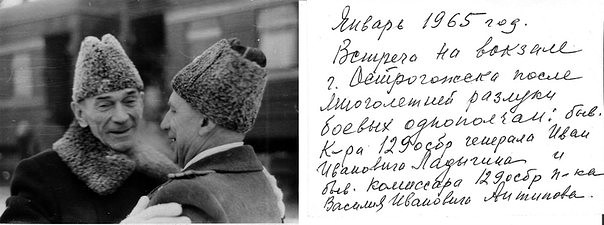 Январь 1965 год.
Встреча на вокзале
г. Острогожска после
многолетней разлуки
боевых однополчан: быв.
К-ра 129осбр генерала Иван
Ивановича Ладыгина и
быв. комиссара 129осбр п-ка
Василия Ивановича Антипова.